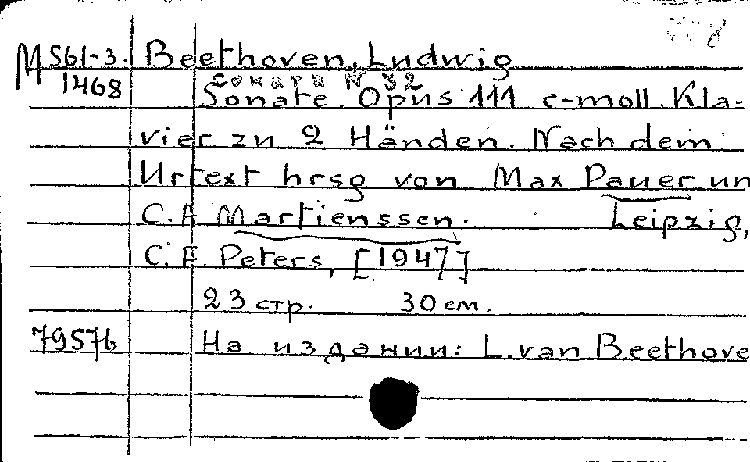 M 561-3. Beethoven, Ludwig
1468
Соната N 32
Sonate. Opus 111 c-moll. Kla-
vier zu 2 Händen. Nach dem
Urtext hrsg von Max Pauer un
C.A Martienssen. Leipzig,
C.F. Peters, [1947]
23 стр. 30 см.
79576 На издании: L. van Beethove